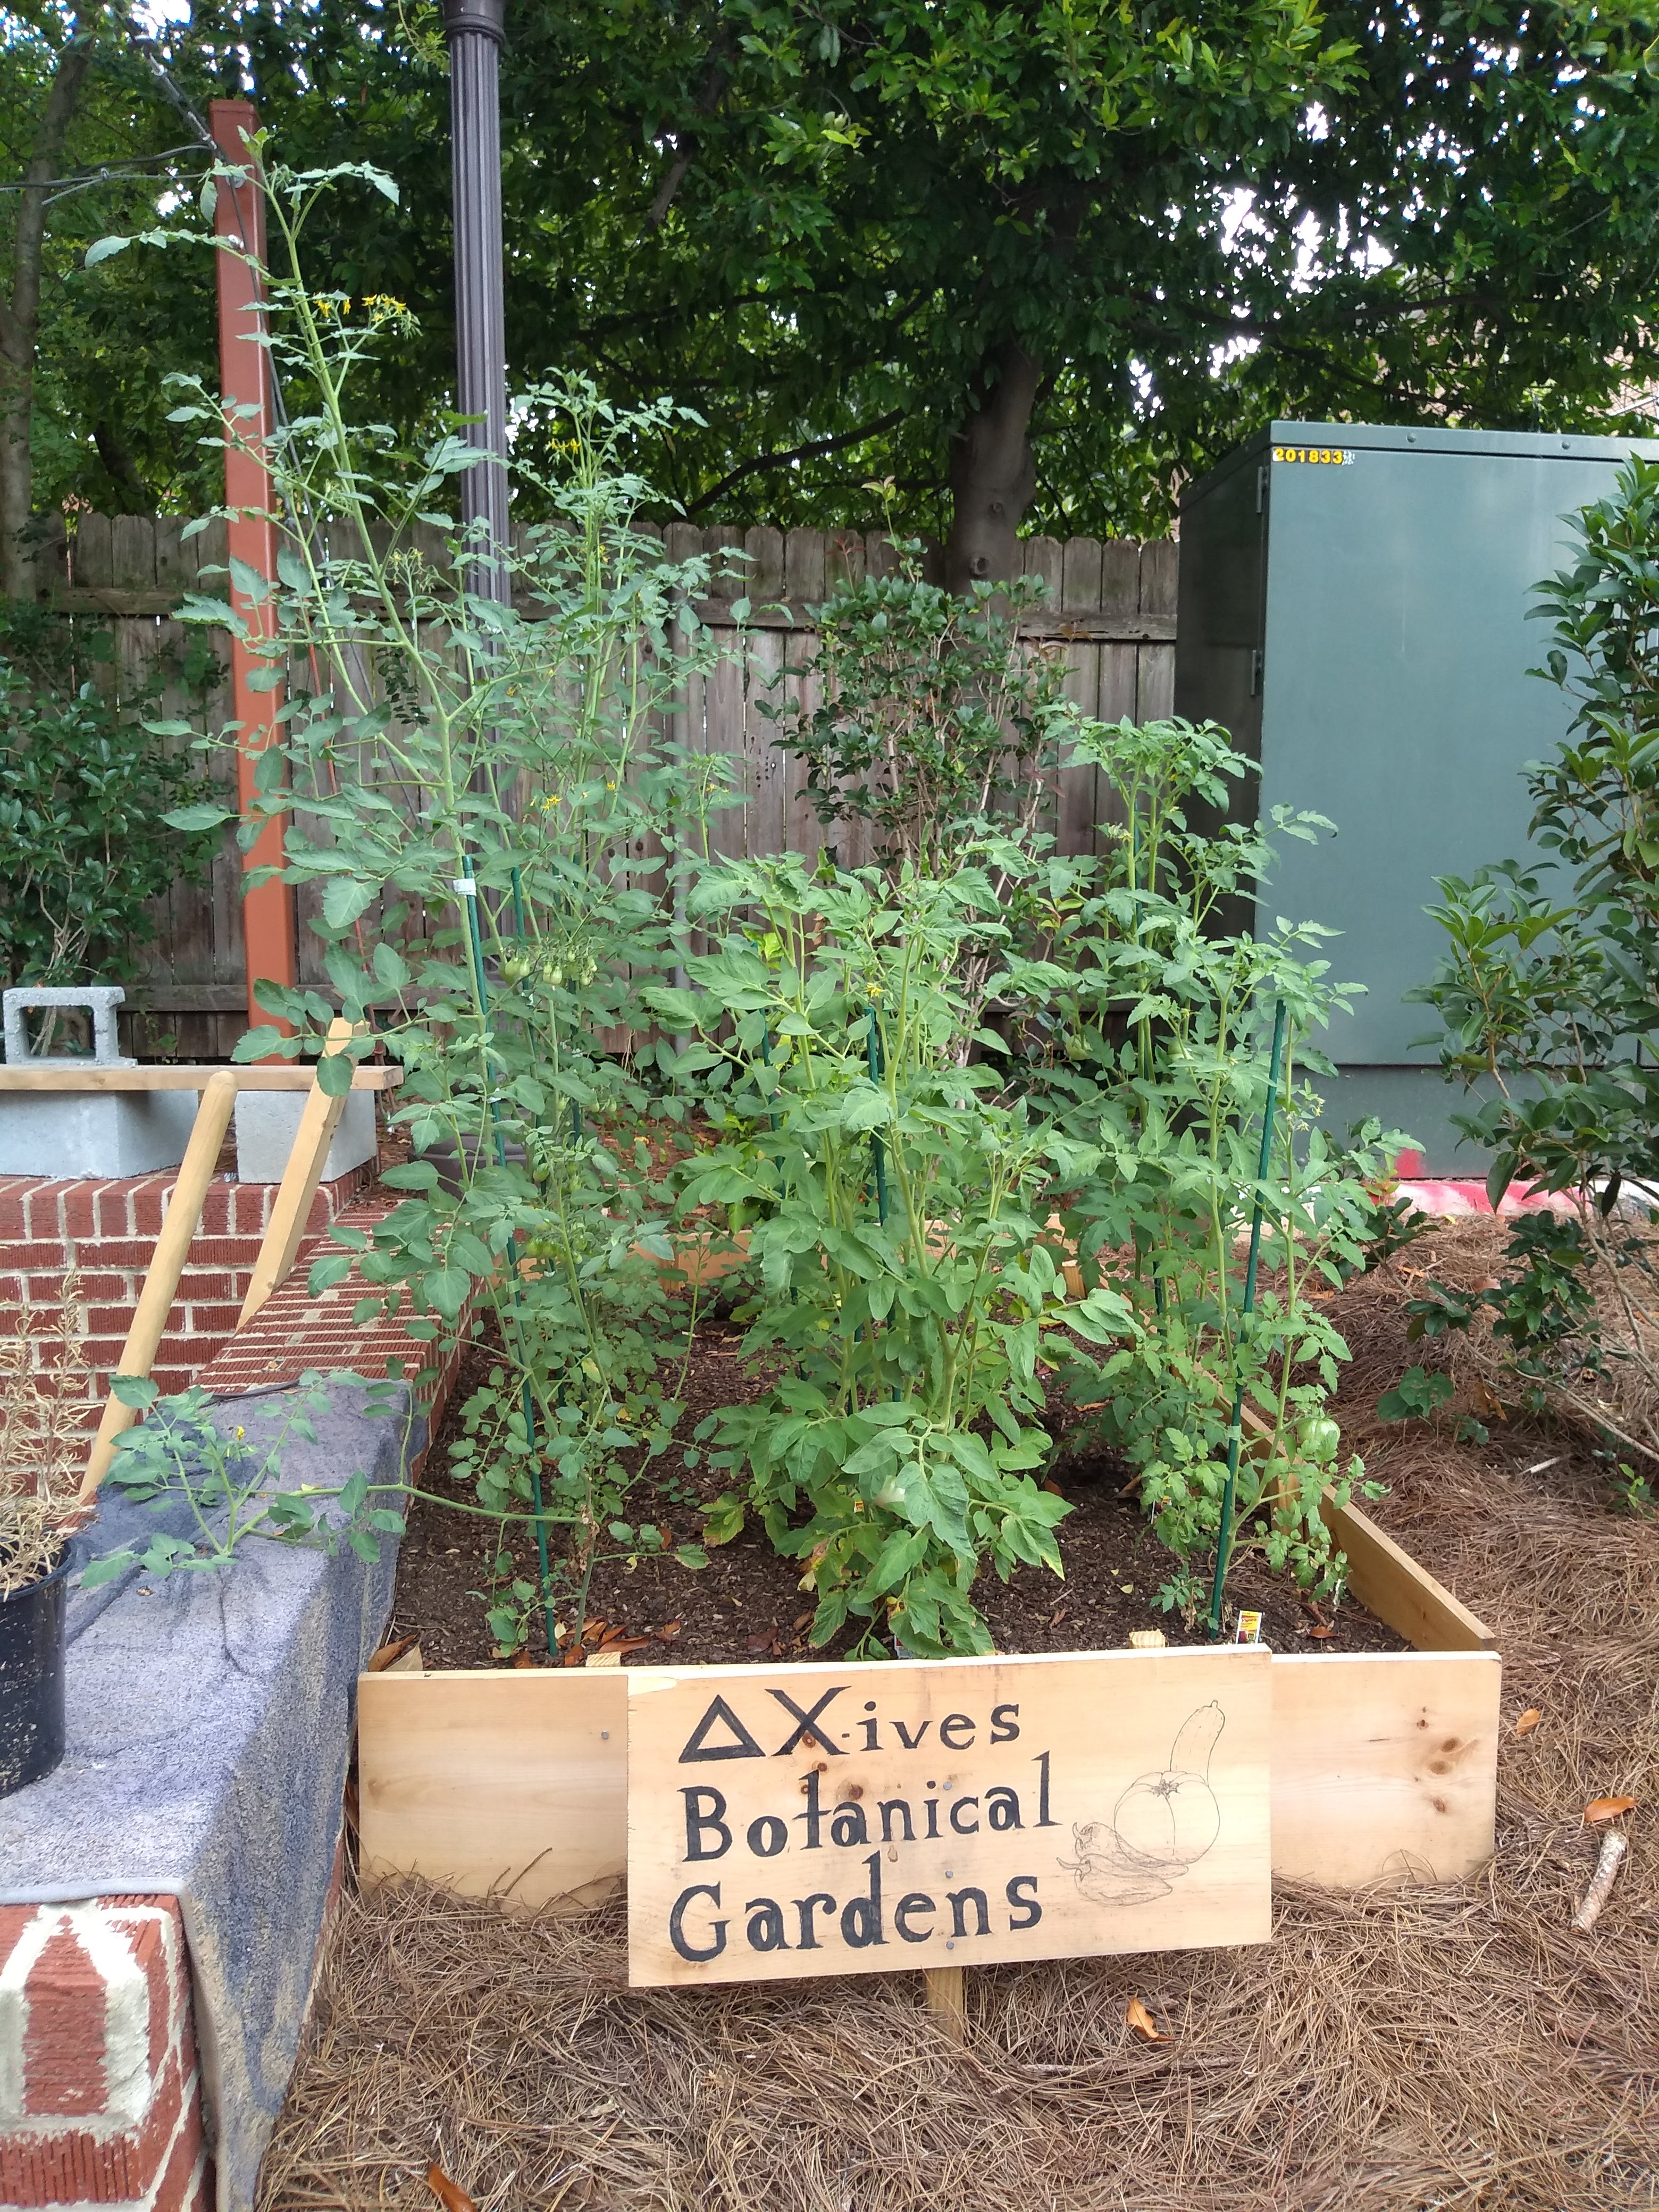 201833
ΔX-ives
Botanical
Gardens